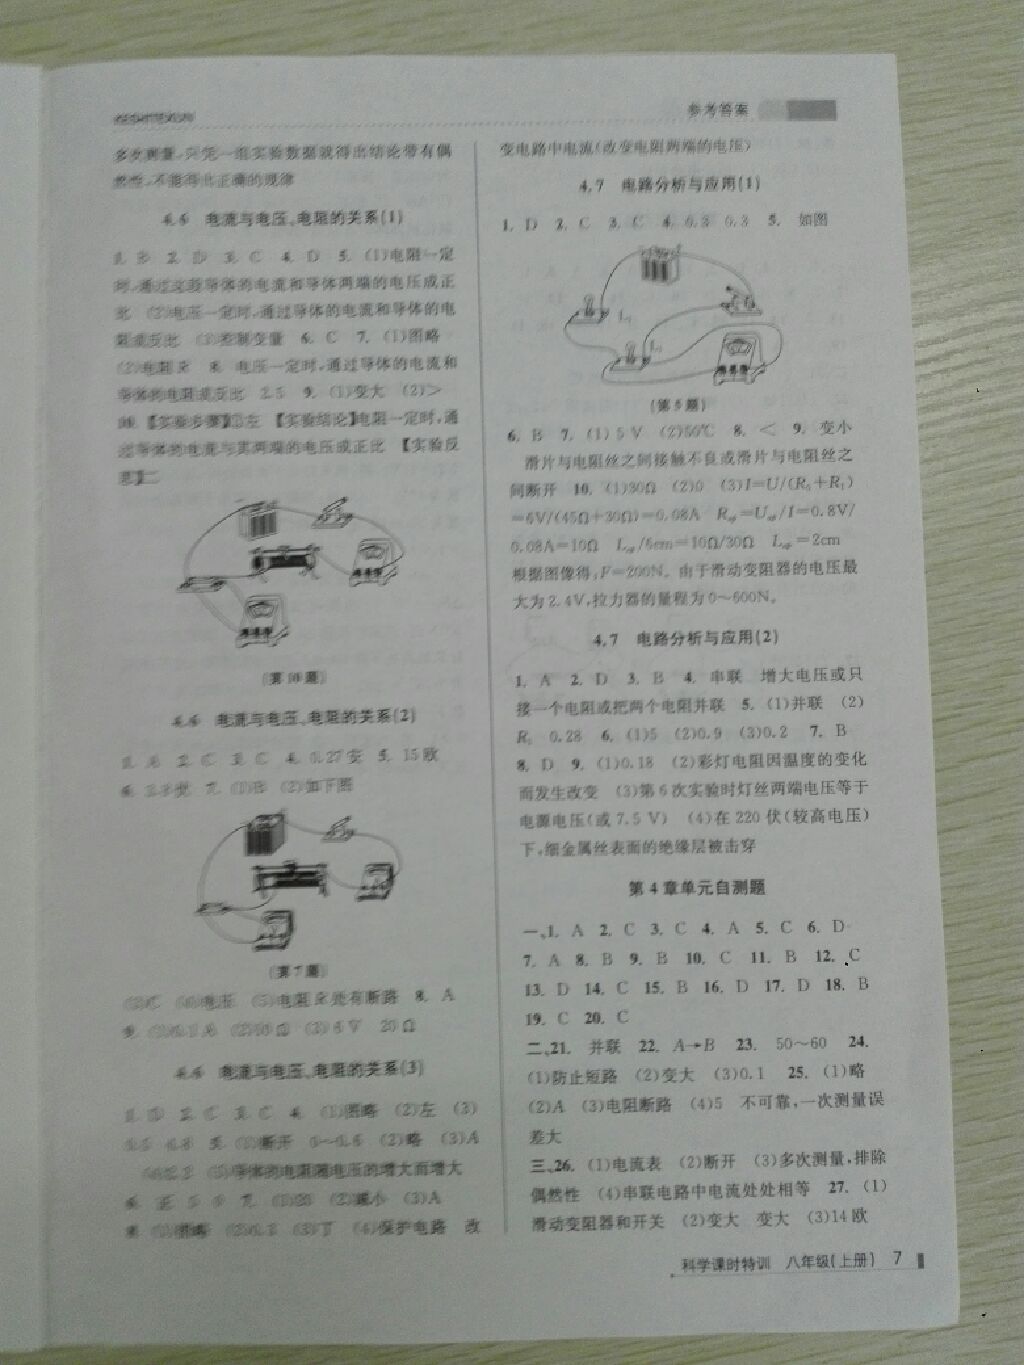 参考答案
多次测量,只凭一组实验数据就得出结论带有偶
然性,不能得出正确的规律
4.6 电流与电压、电阻的关系(1)
2. D 3. C 4. D 5. (1)电阻一定
时,通过这段导体的电流和导体两端的电压成正
比 (2)电压一定时,通过导体的电流和导体的电
阻成反比 (3)控制变量 6. C 7. (1)图略
电压一定时,通过导体的电流和
导体的电阻成反比 2.5 9. (1)变大 (2)>
10. 【实验步骤】①左 【实验结论】电阻一定时,通
过导体的电流与其两端的电压成正比 【实验反
思】二
(第10题)
4.6 电流与电压、电阻的关系(2)
2. C 3. C 4. 0.27安 5. 15欧
(2)如下图
(第7题)
(3)C (4)电压 (5)电阻R处有断路 8. A
20Ω
4.6 电流与电压、电阻的关系(3)
1. D 2. C 3. C 4. (1)图略 (2)左 (3)
(1)断开 (2)略 (3)A
(5)导体的电阻随电压的增大而增大
(2)减小 (3)A
(1)图略 (4)保护电路 改
变电路中电流(改变电阻两端的电压)
4.7 电路分析与应用(1)
1. D 2. C 3. C 4. 0.3 0.3 5. 如图
(第5题)
6. B 7. (1)5V (2)50℃ 8. < 9. 变小
滑片与电阻丝之间接触不良或滑片与电阻丝之
间断开 10. (1)30Ω (2)0 (3)I=U/(R₀+R₁)
=6V/(45Ω+30Ω)=0.08A R=U/I=0.8V/
0.08A=10Ω L/6cm=10Ω/30Ω L=2cm
根据图像得,F=200N。由于滑动变阻器的电压最
大为2.4V,拉力器的量程为0~600N。
4.7 电路分析与应用(2)
1. A 2. D 3. B 4. 串联 增大电压或只
接一个电阻或把两个电阻并联 5. (1)并联 (2)
0.28 6. (1)5 (2)0.9 (3)0.2 7. B
8. D 9. (1)0.18 (2)彩灯电阻因温度的变化
而发生改变 (3)第6次实验时灯丝两端电压等于
电源电压(或7.5 V) (4)在220伏(较高电压)
下,细金属丝表面的绝缘层被击穿
第4章单元自测题
一、1. A 2. C 3. C 4. A 5. C 6. D
7. A 8. B 9. B 10. C 11. B 12. C
13. D 14. C 15. B 16. D 17. D 18. B
19. C 20. C
二、21. 并联 22. A→B 23. 50~60 24.
(1)防止短路 (2)变大 (3)0.1 25. (1)略
(2)A (3)电阻断路 (4)5 不可靠,一次测量误
差大
三、26. (1)电流表 (2)断开 (3)多次测量,排除
偶然性 (4)串联电路中电流处处相等 27. (1)
滑动变阻器和开关 (2)变大 变大 (3)14欧
科学课时特训 八年级(上册) 7